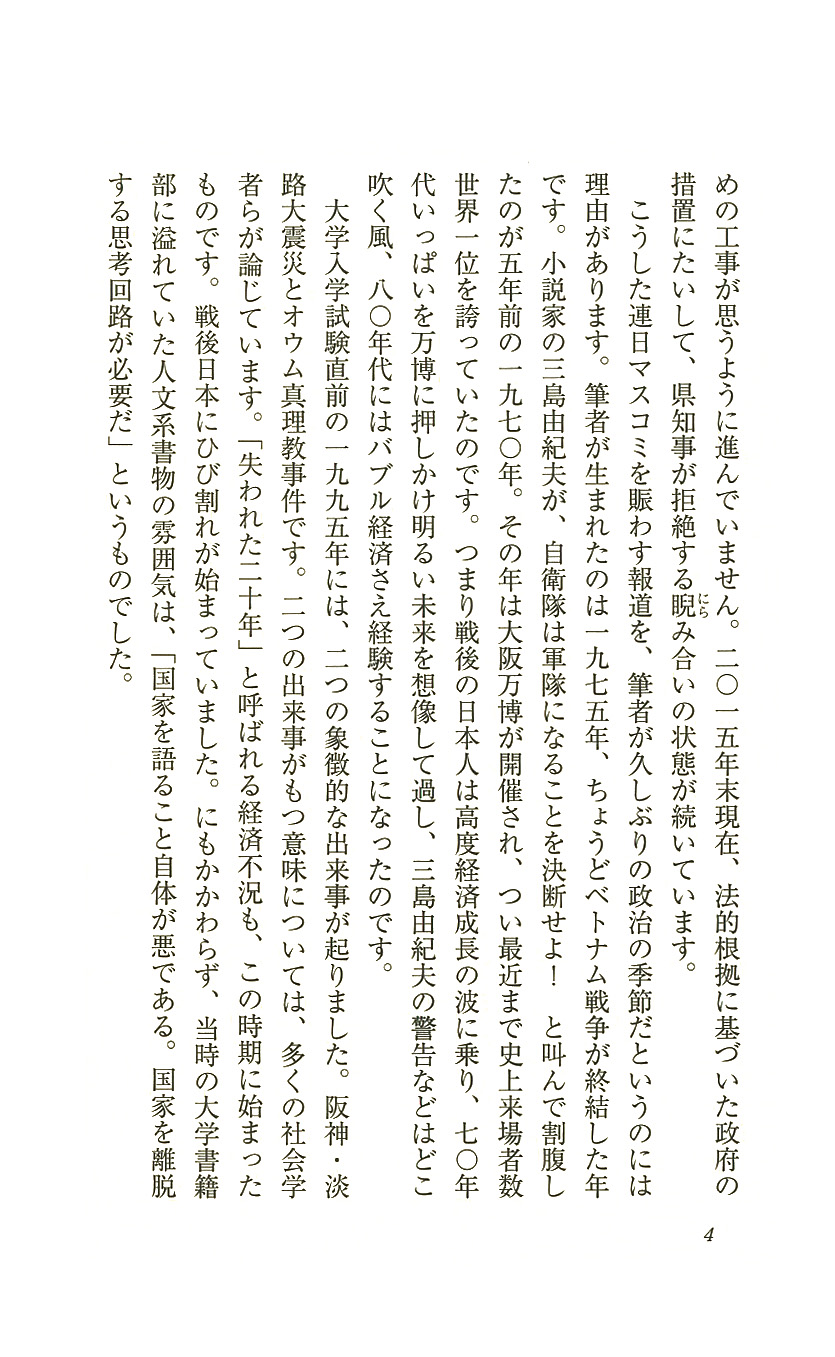 めの工事が思うように進んでいません。二〇一五年末現在、法的根拠に基づいた政府の
措置にたいして、県知事が拒絶する睨み合いの状態が続いています。
にら
　こうした連日マスコミを賑わす報道を、筆者が久しぶりの政治の季節だというのには
理由があります。筆者が生まれたのは一九七五年、ちょうどベトナム戦争が終結した年
です。小説家の三島由紀夫が、自衛隊は軍隊になることを決断せよ！　と叫んで割腹し
たのが五年前の一九七〇年。その年は大阪万博が開催され、つい最近まで史上来場者数
世界一位を誇っていたのです。つまり戦後の日本人は高度経済成長の波に乗り、七〇年
代いっぱいを万博に押しかけ明るい未来を想像して過し、三島由紀夫の警告などはどこ
吹く風、八〇年代にはバブル経済さえ経験することになったのです。
　大学入学試験直前の一九九五年には、二つの象徴的な出来事が起りました。阪神・淡
路大震災とオウム真理教事件です。二つの出来事がもつ意味については、多くの社会学
者らが論じています。「失われた二十年」と呼ばれる経済不況も、この時期に始まった
ものです。戦後日本にひび割れが始まっていました。にもかかわらず、当時の大学書籍
部に溢れていた人文系書物の雰囲気は、「国家を語ること自体が悪である。国家を離脱
する思考回路が必要だ」というものでした。
4